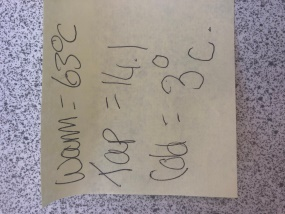 Warm = 63°C
Tap = 14.1
Cold = 3°C.